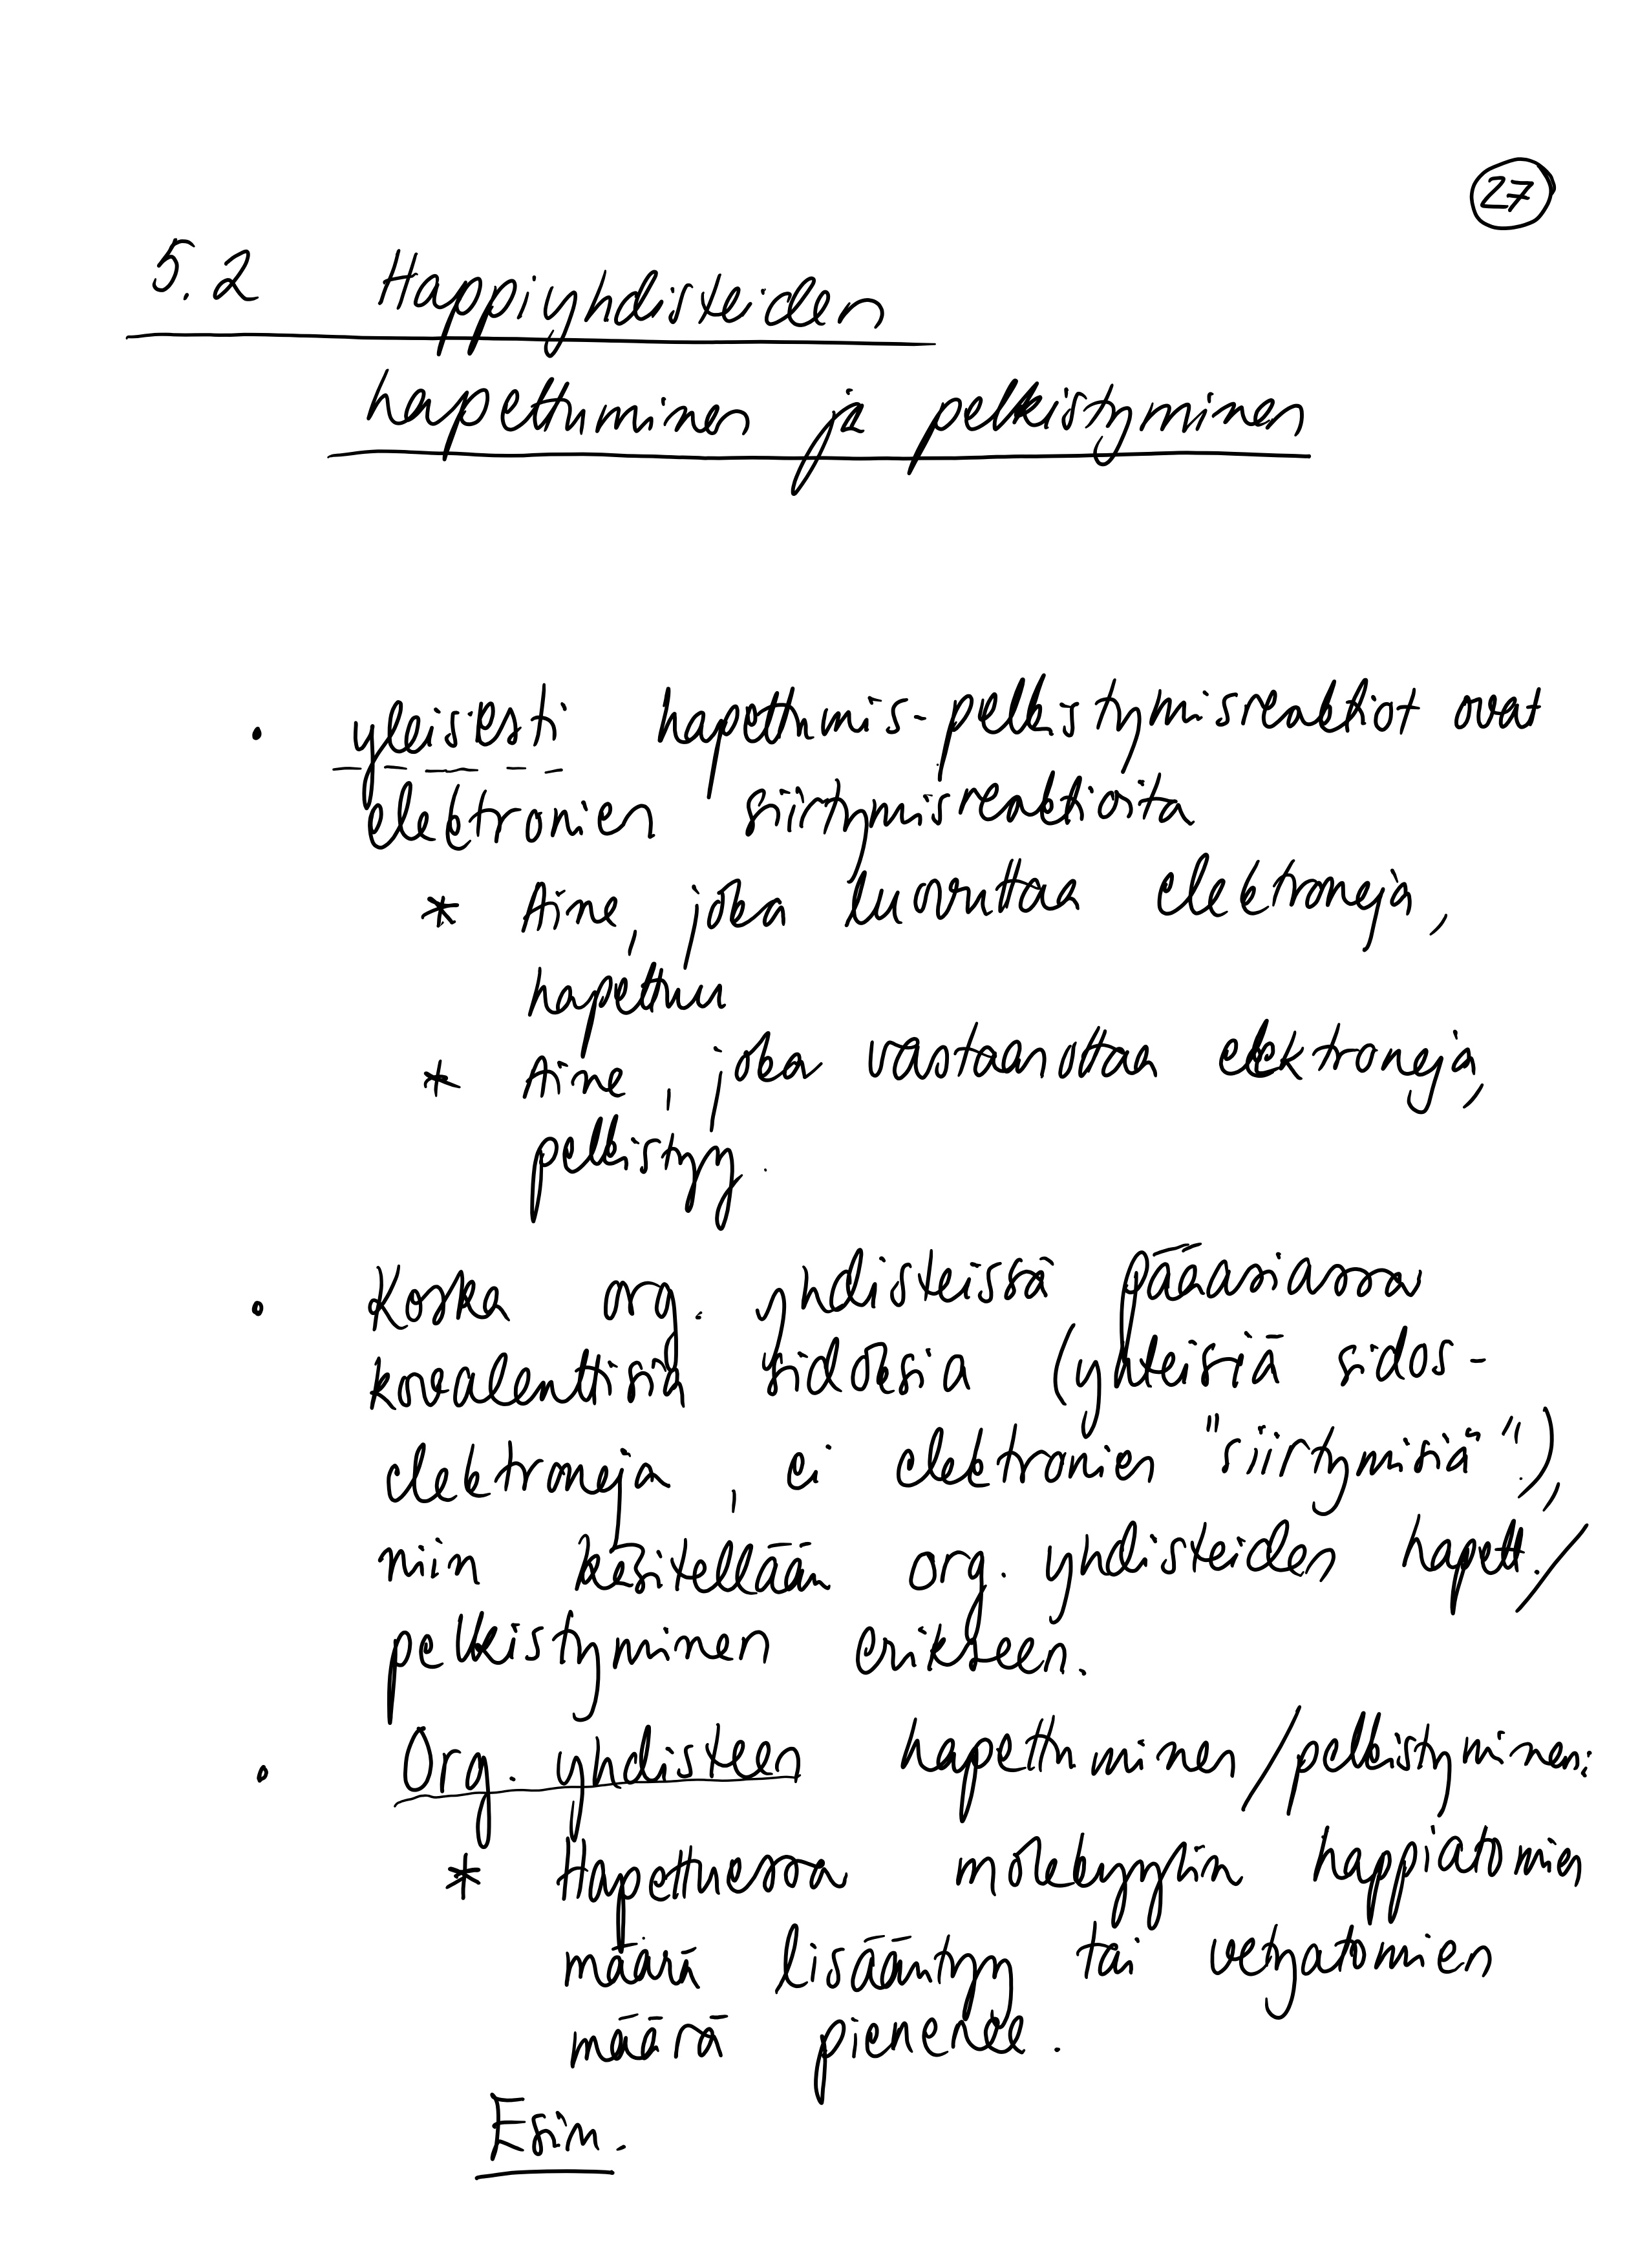 27
5.2 Happiyhdisteiden
hapettuminen ja pelkistyminen
• yleisesti hapettumis-pelkistymisreaktiot ovat
elektronien siirtymisreaktioita
* Aine, joka luovuttaa elektroneja,
hapettuu
* Aine, joka vastaanottaa elektroneja,
pelkistyy.
• Koska org. yhdisteissä pääasiassa
kovalenttisia sidoksia (yhteisiä sidos-
elektroneja, ei elektronien "siirtymisiä"),
niin käsitellään org. yhdisteiden hapett./
pelkistyminen erikseen.
• Org. yhdisteen hapettuminen/pelkistyminen:
* Hapettuessa molekyylin happiatomien
määrä lisääntyy tai vetyatomien
määrä pienenee.
Esim.